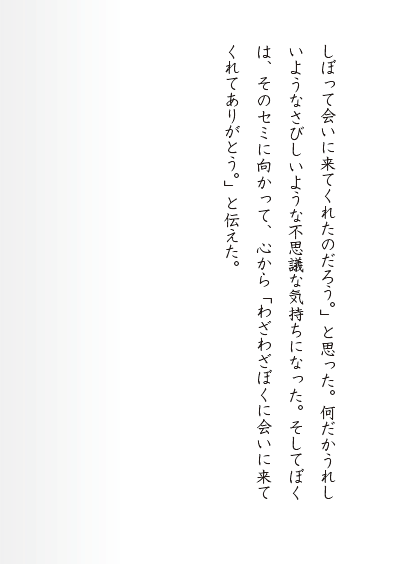 しぼって会いに来てくれたのだろう。」と思った。何だかうれし
いようなさびしいような不思議な気持ちになった。そしてぼく
は、そのセミに向かって、心から「わざわざぼくに会いに来て
くれてありがとう。」と伝えた。